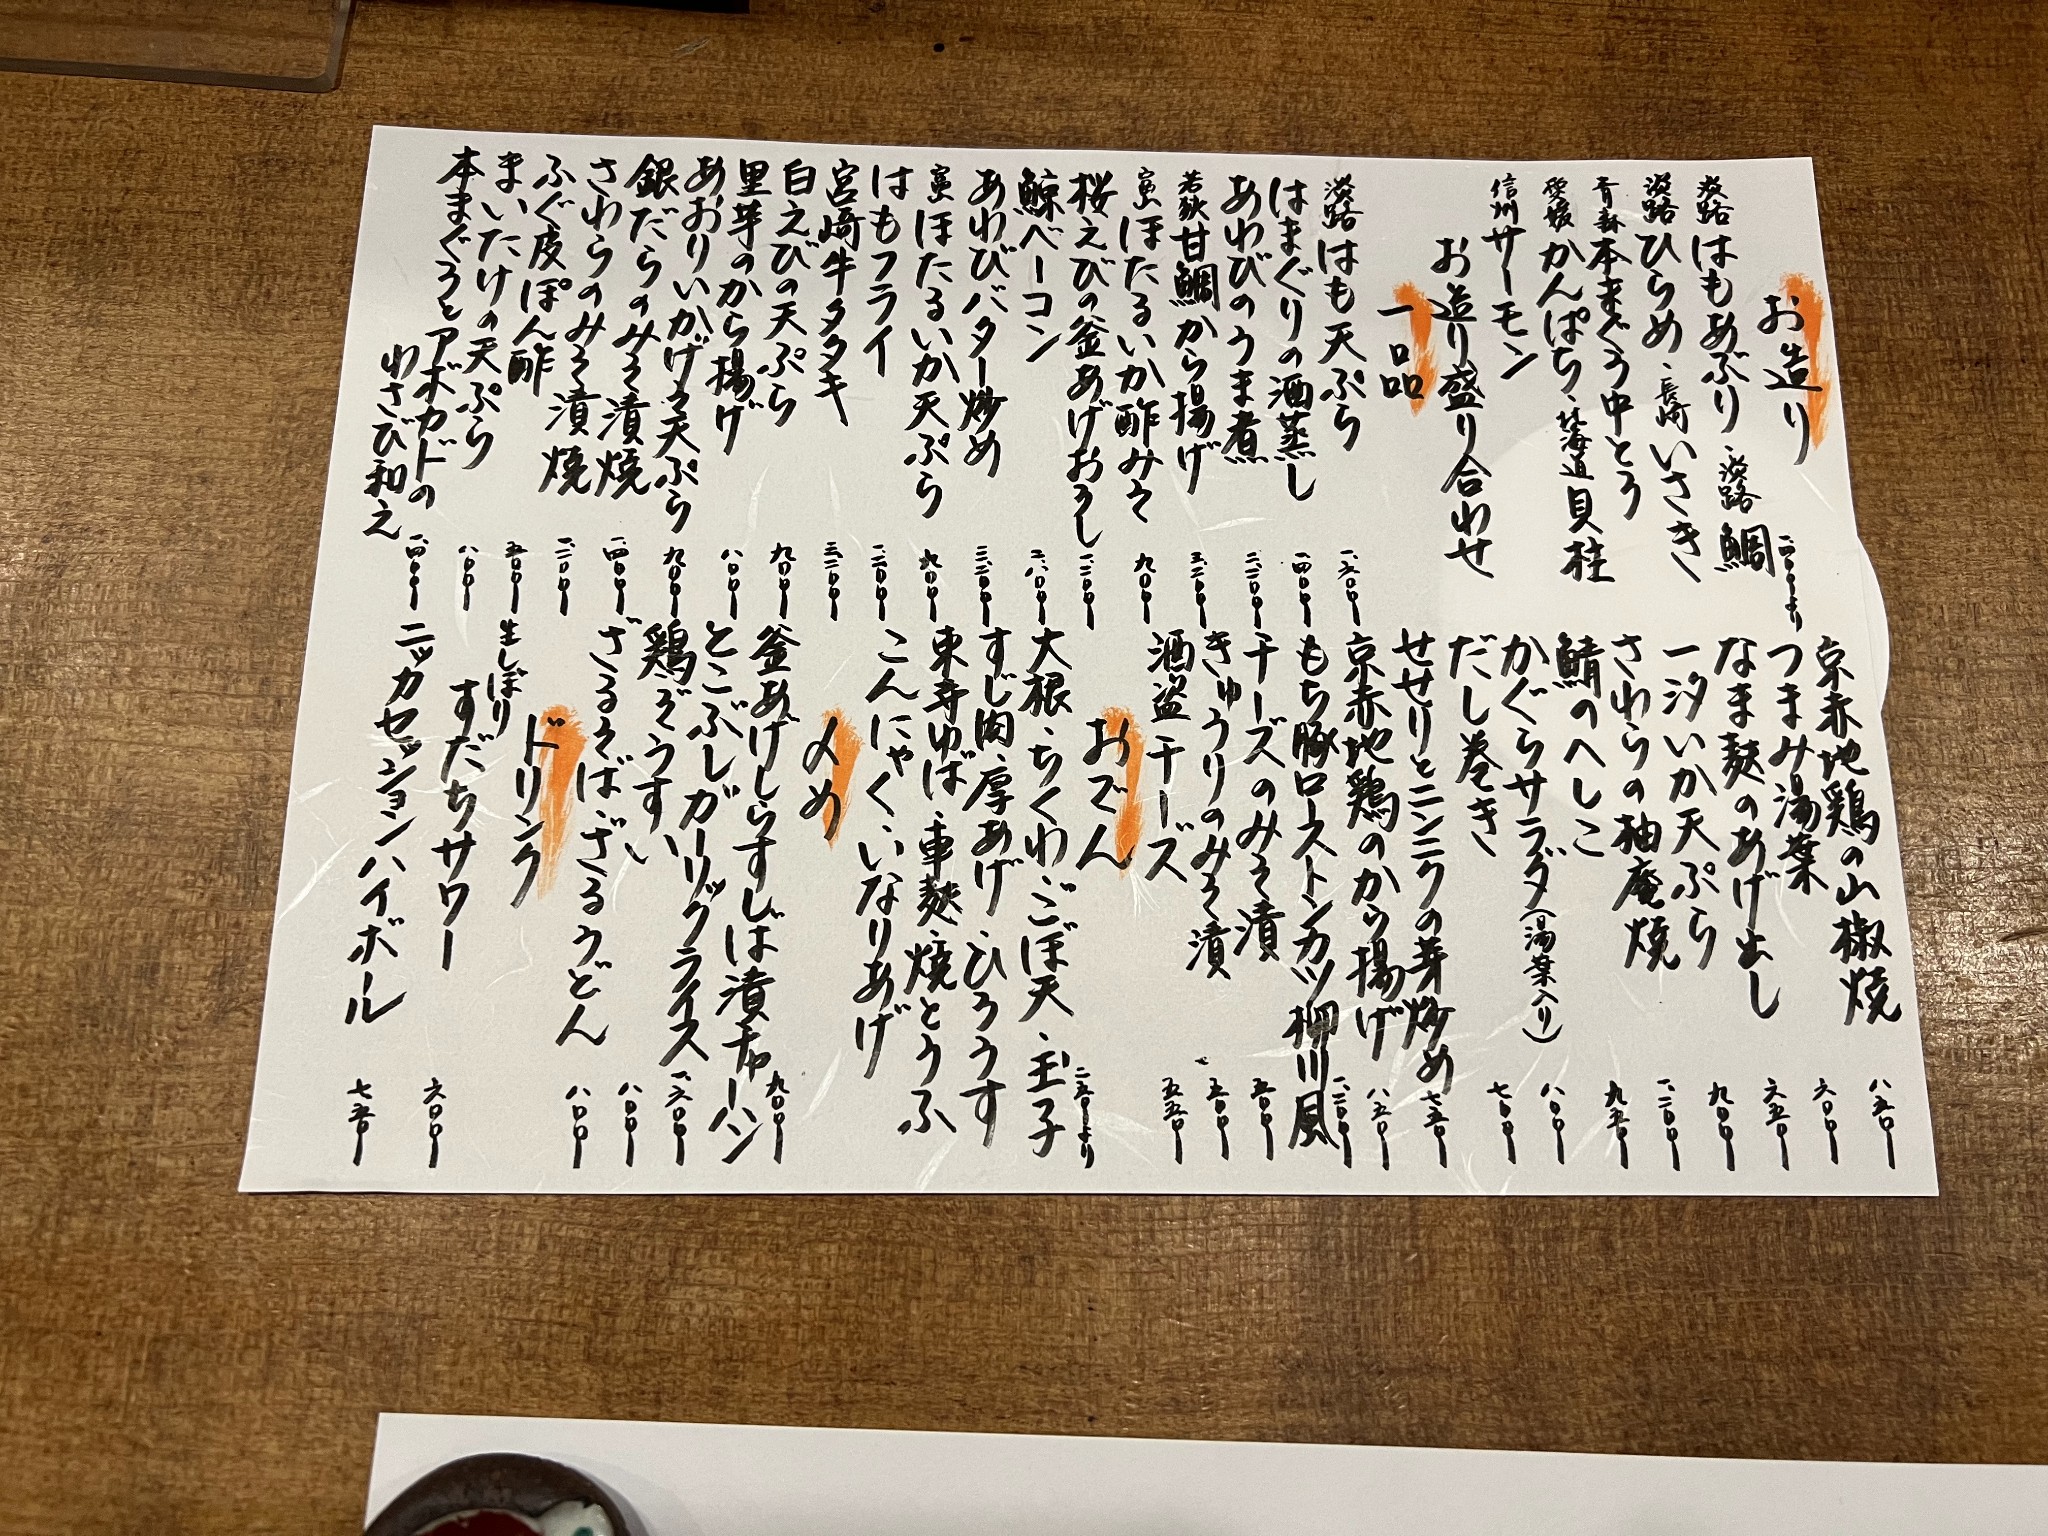 お造り
淡路はもあぶり、淡路鯛
淡路ひらめ、長崎いさき
青森本まぐろ中とろ
愛媛かんぱち、北海道貝柱
信州サーモン
お造り盛り合わせ 二、四〇〇ー より
一品
淡路はも天ぷら 一、六〇〇ー
はまぐりの酒蒸し 一、四〇〇ー
あわびのうま煮 三、二〇〇ー
若狭甘鯛から揚げ
ほたるいか酢みそ 九〇〇ー
桜えびの釜あげおろし 一、二〇〇ー
鯨ベーコン 二、八〇〇ー
あわびバター炒め 三、二〇〇ー
ほたるいか天ぷら 九〇〇ー
はもフライ
宮崎牛タタキ
白えびの天ぷら 九〇〇ー
里芋のから揚げ 八〇〇ー
あおりいかげそ天ぷら 九〇〇ー
銀だらのみそ漬焼 一、四〇〇ー
さわらのみそ漬焼 一、二〇〇ー
ふぐ皮ぽん酢 五〇〇ー
まいたけの天ぷら 八〇〇ー
本まぐろとアボカドの
わさび和え 一、四〇〇ー
京赤地鶏の山椒焼 八五〇ー
つまみ湯葉 六〇〇ー
なま麸のあげ出し 六五〇ー
一汐いか天ぷら 九〇〇ー
さわらの柚庵焼 一、二〇〇ー
鯖のへしこ 九五〇ー
かぐらサラダ(湯葉入り) 八〇〇ー
だし巻き 七〇〇ー
せせりとニンニクの芽炒め 七五〇ー
京赤地鶏のから揚げ 八五〇ー
もち豚ローストンカツ柳川風 一、二〇〇ー
チーズのみそ漬 五〇〇ー
きゅうりのみそ漬 五〇〇ー
酒盗チーズ 五五〇ー
おでん
大根、ちくわ、ごぼ天、玉子 二五〇ー より
すじ肉、厚あげ、ひろうす
東寺ゆば、車麸、焼とうふ
こんにゃく、いなりあげ
〆め
釜あげしらすしば漬チャーハン 九〇〇ー
とこぶしガーリックライス 一、六〇〇ー
鶏ぞうすい 八〇〇ー
ざるそば、ざるうどん 八〇〇ー
ドリンク
生しぼり
すだちサワー 六〇〇ー
ニッカセッションハイボール 七五〇ー